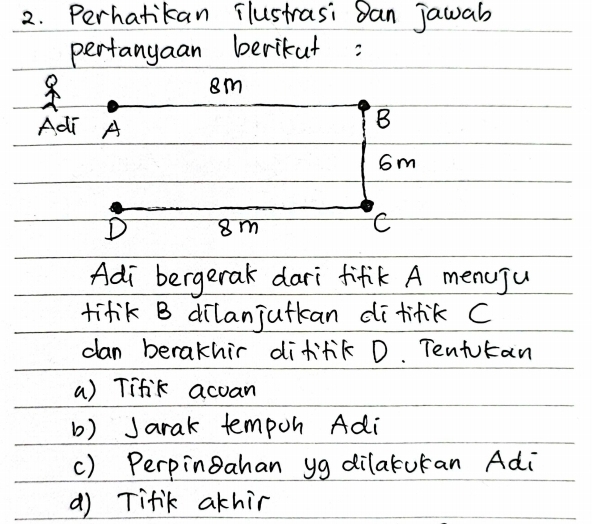 2. Perhatikan ilustrasi dan jawab
pertanyaan berikut :
8m
Adi A B
6m
D 8m C
Adi bergerak dari titik A menuju
titik B dilanjutkan di titik C
dan berakhir di titik D. Tentukan
a) Titik acuan
b) Jarak tempuh Adi
c) Perpindahan yg dilakukan Adi
d) Titik akhir